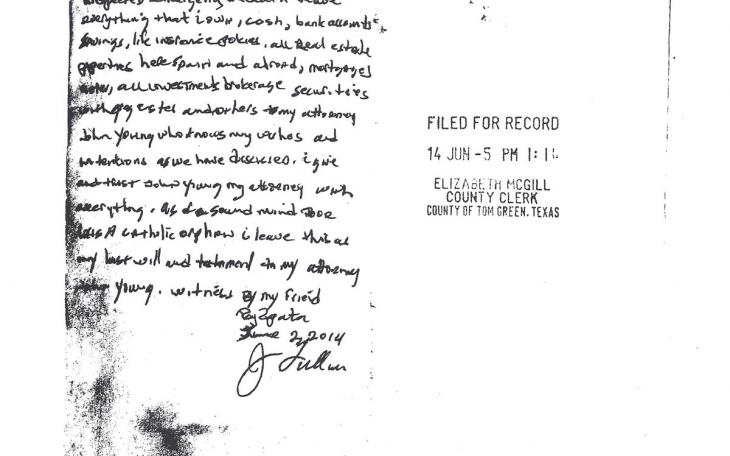 everything that i own, cash, bank accounts,
savings, life insrance polcies. all Real estate
properties here Spain and abroad, mortgages
notes, all investments brokerage securities
and others to my attorney
John Young who knows my wishes and
intentions as we have discussed. i give
and trust John Young my attorney with
everything. As of a sound mind
Catholic orphan i leave this as
my last will and testament to my attorney
John Young. witness By my friend
Ray Zapata
June 2, 2014
J Sullivan
FILED FOR RECORD
14 JUN -5 PM 1:11
ELIZABETH MCGILL
COUNTY CLERK
COUNTY OF TOM GREEN, TEXAS